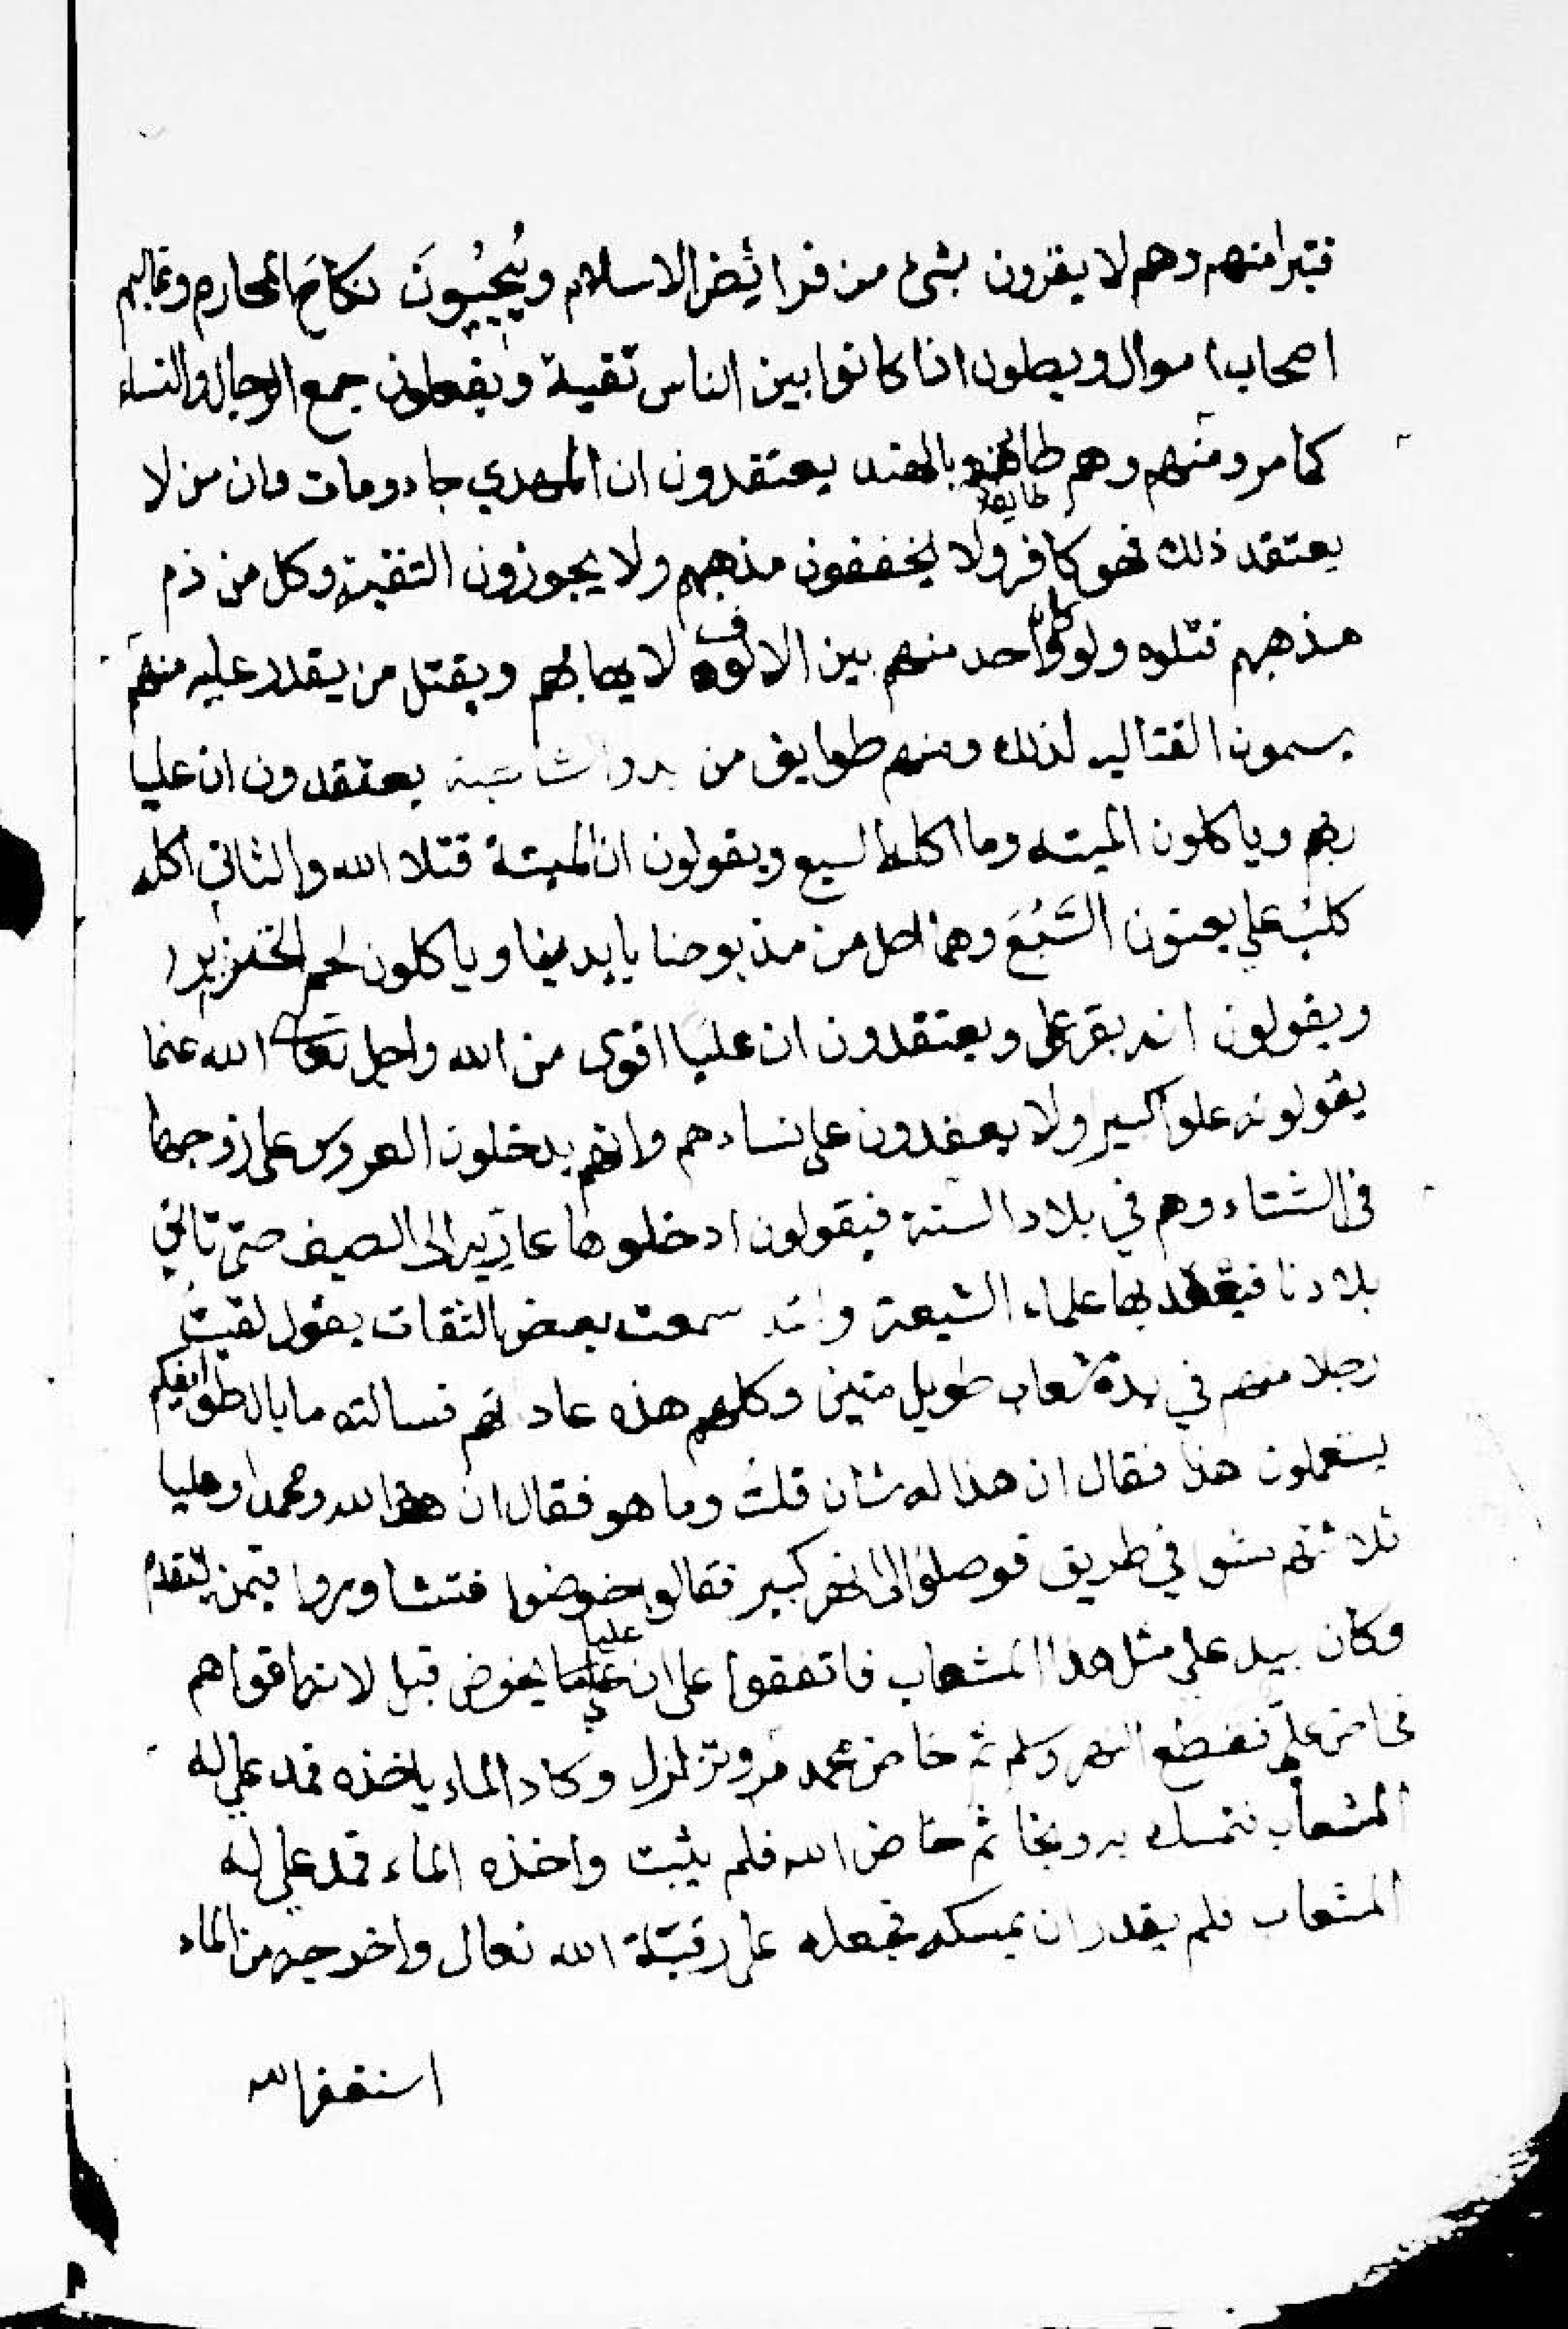 فتبرا منهم وهم لا يقرون بشئ من فرائض الاسلام ويُجيبُونَ نكاحَ المحارم وغالبهم
اصحاب اموال ويصلون اذا كانوا بين الناس تقية ويفعلون جمع الرجال والنساء
كما مر ومنهم وهم طائفة بالهند يعتقدون ان المهدي جاء ومات وان من لا
يعتقد ذلك فهو كافر ولا يخففون مذهبهم ولا يجوزون التقية وكل من ذم
مذهبهم قتلوه ولو كل واحد منهم بين الالوف لا يهابهم ويقتل من يقدر عليه منهم
يسمون القتاليه لذلك ومنهم طوايف من يعتقدون ان عليا
ربهم وياكلون الميته وما اكله السبع ويقولون ان الميتة قتلا الله والثاني اكله
كلب علي يعنون السَّبُعَ وهما احل من مذبوحنا بايدينا وياكلون لحم الخنزير
ويقولون انه بقر علي ويعتقدون ان عليا اقوى من الله واجل تعالى الله عنما
يقولونه علوا كبيرا ولا يعقدون على نساءهم وانهم يدخلون العروس على زوجها
في الشتاء وهم في بلاد السنة فيقولون ادخلوها عارية الى الصيف حتى تاتي
بلادنا فيعقد بها علماء الشيعة سمعت بعض الثقات يقول لقيتُ
رجلا منهم في يده مشعاب طويل متين وكلهم هذه عادتهم فسالته ما بال طوايفكم
يستعملون هذا فقال ان هذا له شان قلتُ وما هو فقال ان هذا الله ومحمدا وعليا
ثلاثتهم مشوا في طريق فوصلوا الى نهر كبير فقالوا خوضوا فتشاوروا فيمن يتقدم
وكان بيد علي مثل هذا المشعاب فاتفقوا على ان عليا يخوض قبل لانه اقواهم
فخاض علي فقطع النهر وسلم ثم خاض محمد فمر وتزلزل وكاد الماء ياخذه فمد علي له
المشعاب فتمسك به ونجا ثم خاض الله فلم يثبت واخذه الماء فمد علي له
المشعاب فلم يقدر ان يمسكه فجعله على رقبة الله تعالى واخرجه من الماء
استغفر الله